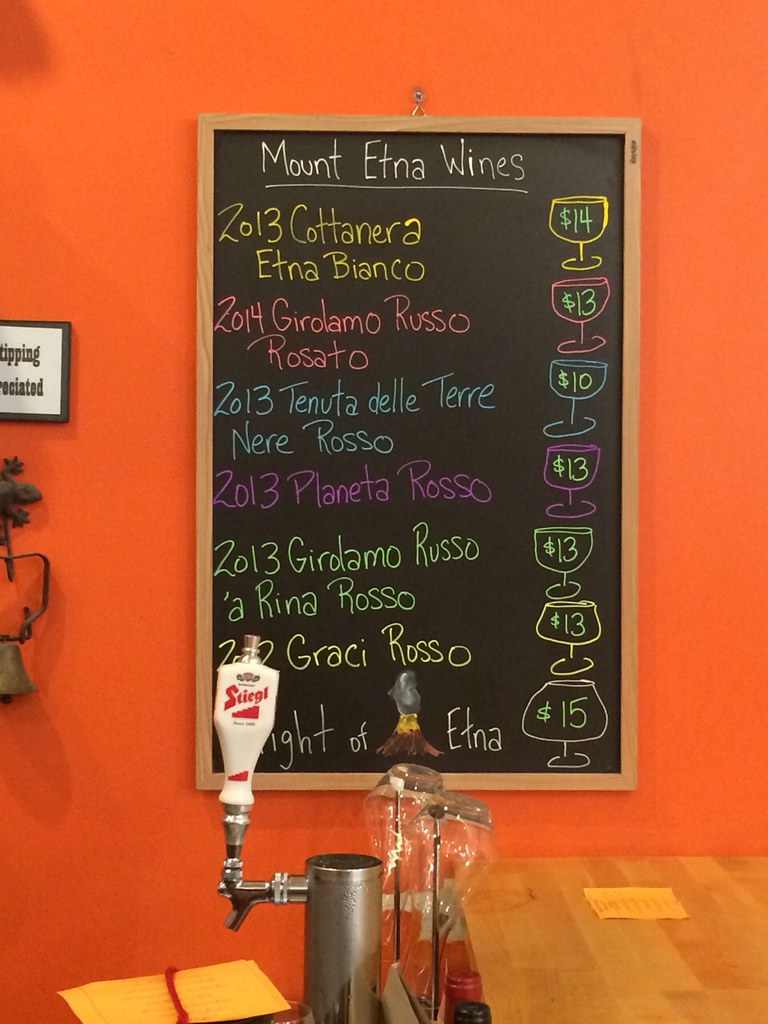 Mount Etna Wines
2013 Cottanera
Etna Bianco
$14
2014 Girolamo Russo
Rosato
$13
2013 Tenuta delle Terre
Nere Rosso
$10
2013 Planeta Rosso
$13
2013 Girolamo Russo
'a Rina Rosso
$13
Graci Rosso
$13
of Etna
$15
tipping
Stiegl